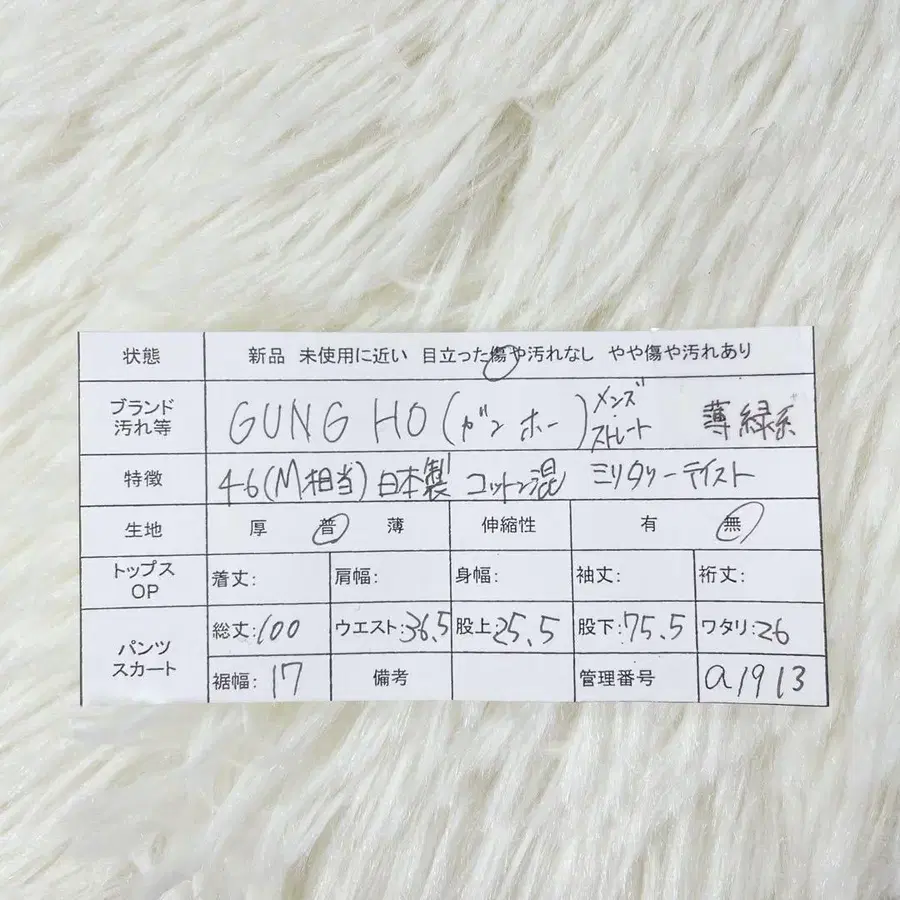 状態 新品 未使用に近い 目立った傷や汚れなし やや傷や汚れあり
ブランド 汚れ等 GUNG HO (ガンホー) メンズ ストレート 薄緑系
特徴 46(M相当) 日本製 コットン混 ミリタリーテイスト
生地 厚 普 薄 伸縮性 有 無
トップス OP 着丈: 肩幅: 身幅: 袖丈: 裄丈:
パンツ スカート 総丈:100 ウエスト:36.5 股上:25.5 股下:75.5 ワタリ:26
裾幅:17 備考 管理番号 a1913